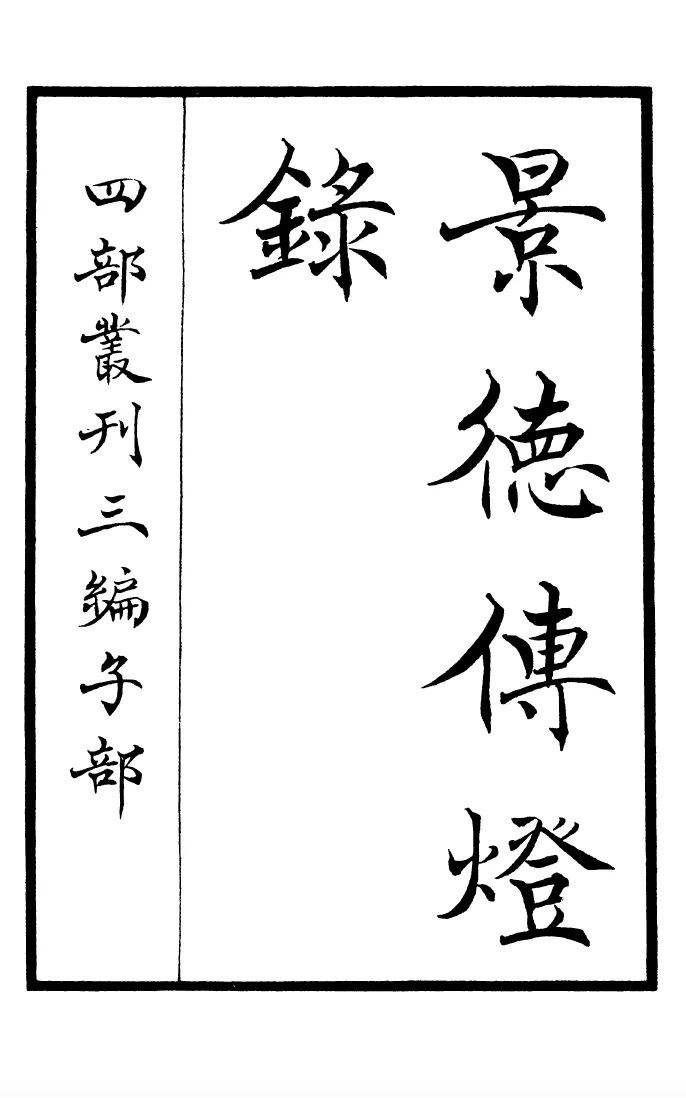 景德傳燈
錄
四部叢刊三編子部